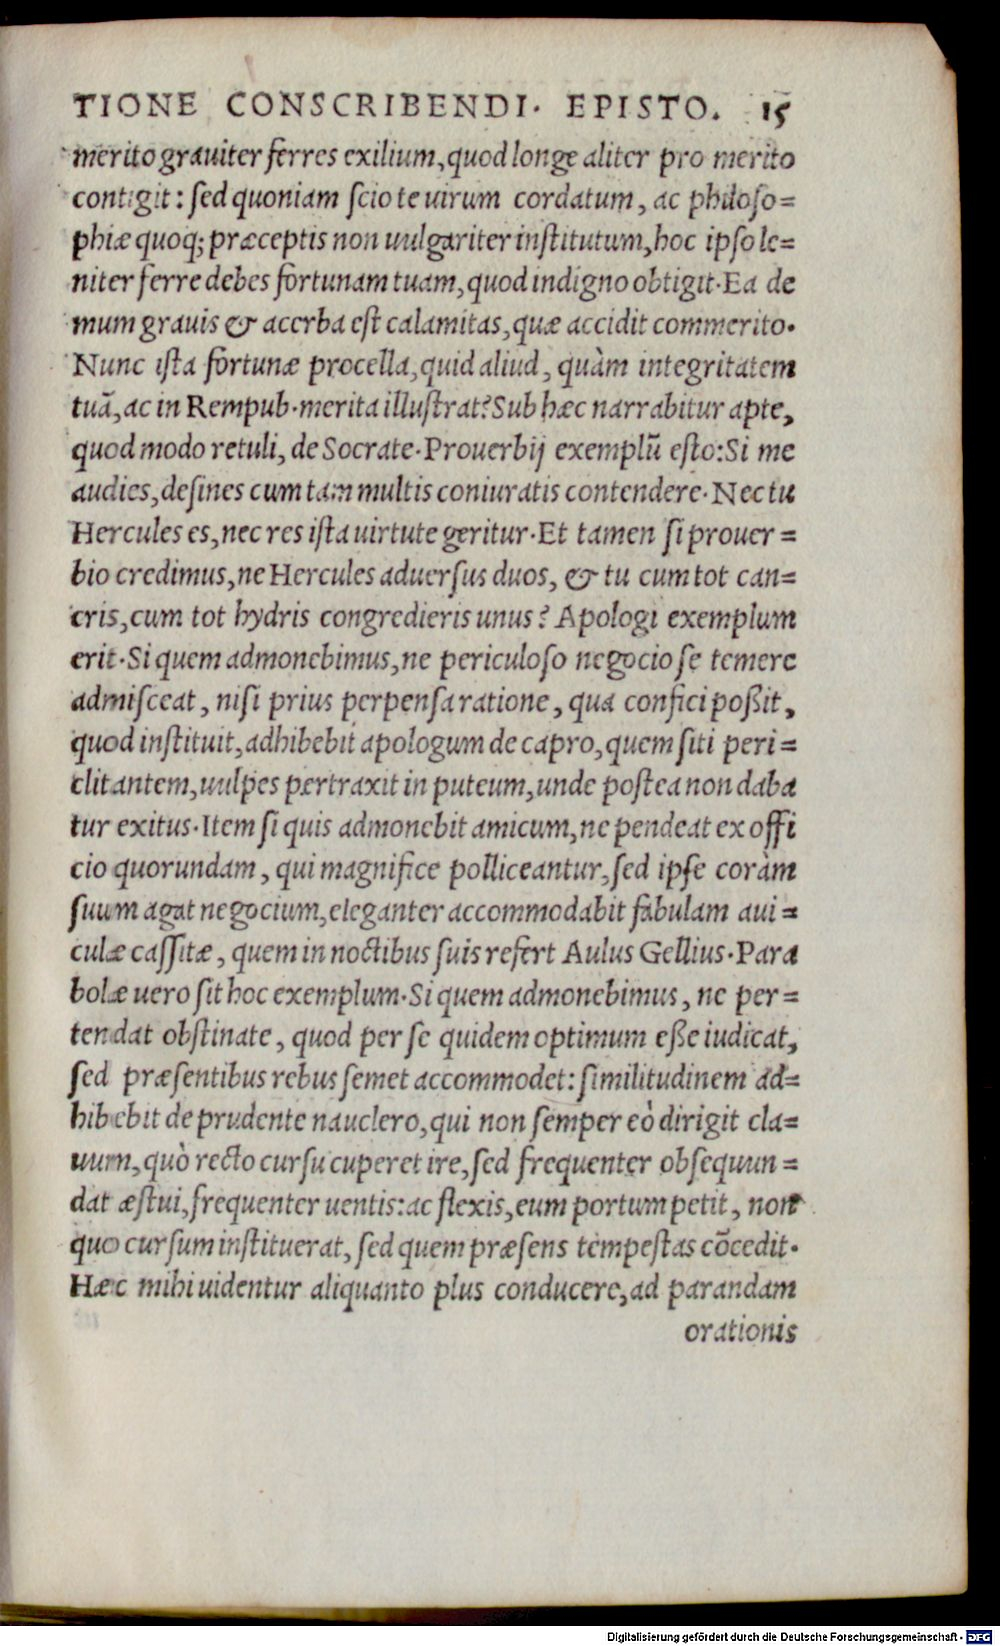 TIONE CONSCRIBENDI. EPISTO. 15
merito grauiter ferres exilium, quod longe aliter pro merito
contigit: sed quoniam scio te uirum cordatum, ac philoso=
phiæ quoq; præceptis non uulgariter institutum, hoc ipso le=
niter ferre debes fortunam tuam, quod indigno obtigit. Ea de
mum grauis & acerba est calamitas, quæ accidit commerito.
Nunc ista fortunæ procella, quid aliud, quàm integritatem
tuã, ac in Rempub. merita illustrat? Sub hæc narrabitur apte,
quod modo retuli, de Socrate. Prouerbij exemplũ esto: Si me
audies, desines cum tam multis coniuratis contendere. Nec tu
Hercules es, nec res ista uirtute geritur. Et tamen si prouer=
bio credimus, ne Hercules aduersus duos, & tu cum tot can=
cris, cum tot hydris congredieris unus? Apologi exemplum
erit. Si quem admonebimus, ne periculoso negocio se temere
admisceat, nisi prius perpensa ratione, qua confici poßit,
quod instituit, adhibebit apologum de capro, quem siti peri=
clitantem, uulpes pertraxit in puteum, unde postea non daba
tur exitus. Item si quis admonebit amicum, ne pendeat ex offi
cio quorundam, qui magnifice polliceantur, sed ipse coràm
suum agat negocium, eleganter accommodabit fabulam aui=
culæ cassitæ, quem in noctibus suis refert Aulus Gellius. Para
bolæ uero sit hoc exemplum. Si quem admonebimus, ne per=
tendat obstinate, quod per se quidem optimum eße iudicat,
sed præsentibus rebus semet accommodet: similitudinem ad=
hibebit de prudente nauclero, qui non semper eò dirigit cla=
uum, quò recto cursu cuperet ire, sed frequenter obsequun=
dat æstui, frequenter uentis: ac flexis, eum portum petit, non
quo cursum instituerat, sed quem præsens tempestas cõcedit.
Hæc mihi uidentur aliquanto plus conducere, ad parandam
orationis
Digitalisierung gefördert durch die Deutsche Forschungsgemeinschaft - DFG